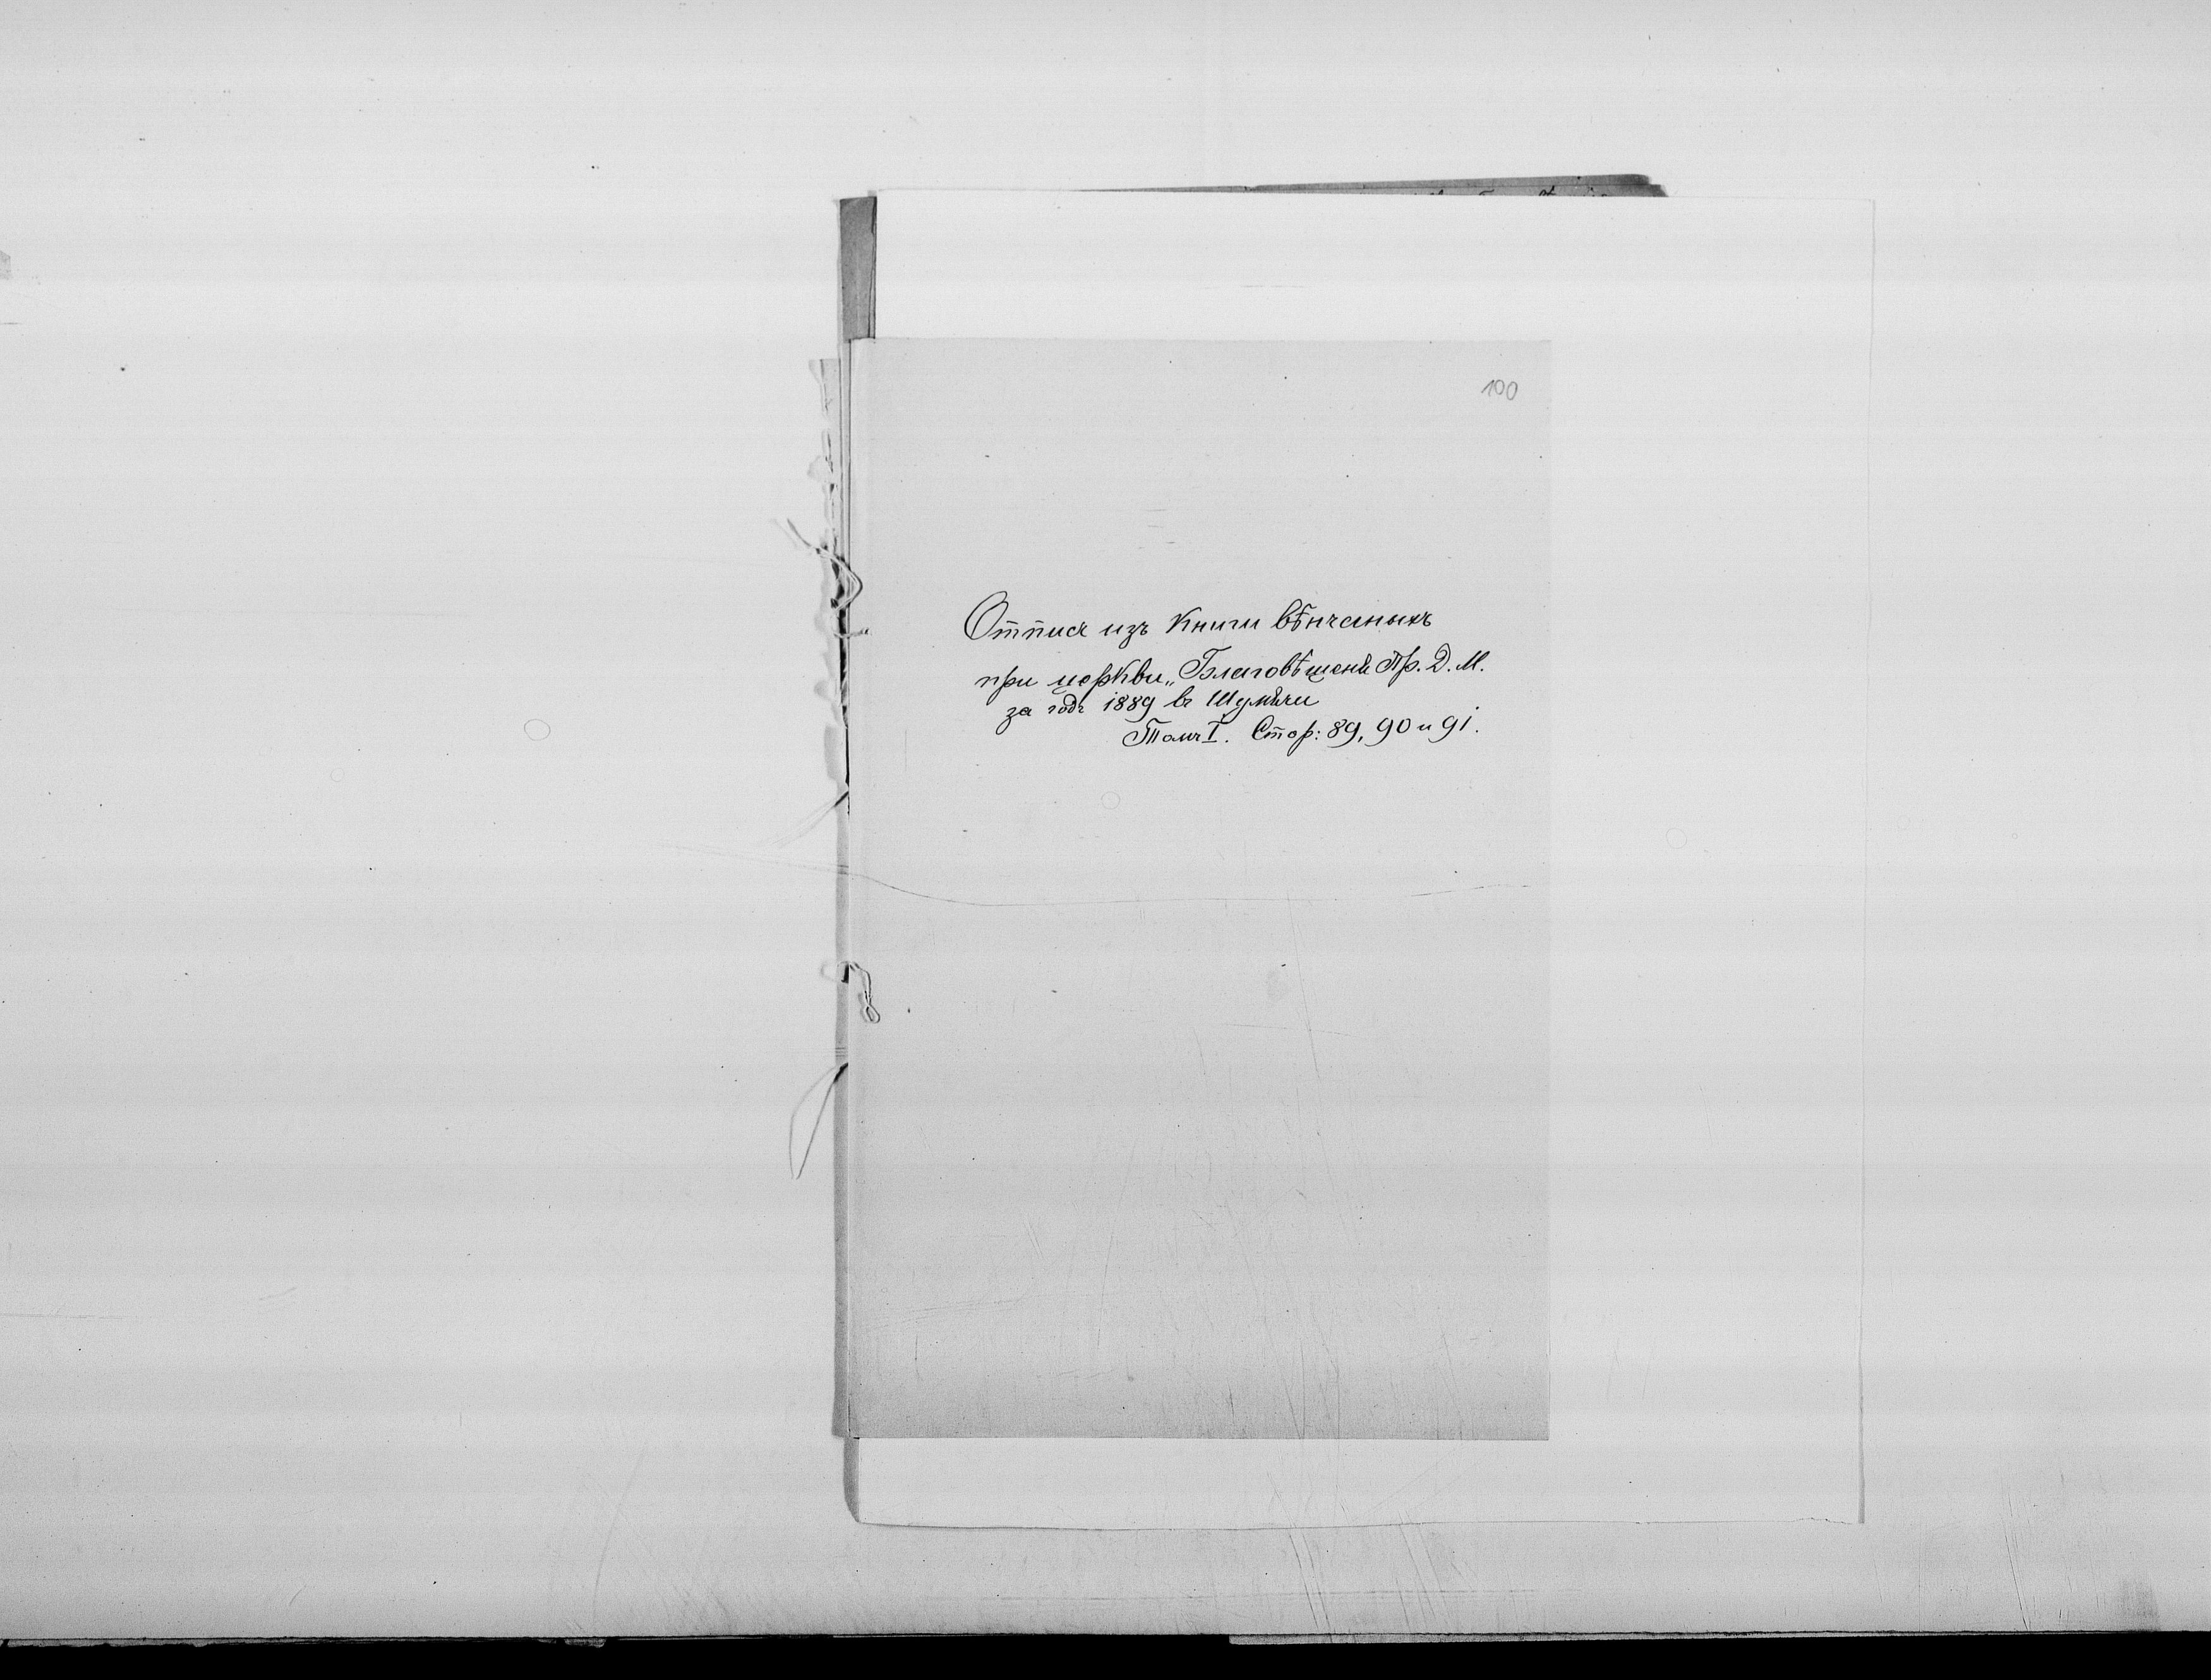 100
Отпись изъ Книги вѣнчаныхъ
при церкви „Благовѣщенія Пр. Д. М.
за годъ 1889 въ Шумлячи
Томъ I. Стор: 89, 90 и 91.